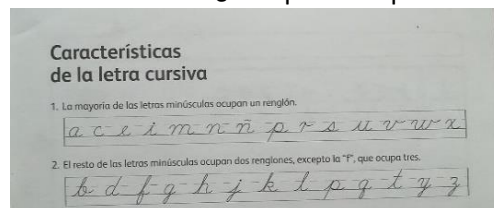 Características
de la letra cursiva
1. La mayoría de las letras minúsculas ocupan un renglón.
a c e i m n ñ p r s u v w x
2. El resto de las letras minúsculas ocupan dos renglones, excepto la "f", que ocupa tres.
b d f g h j k l p q t y z